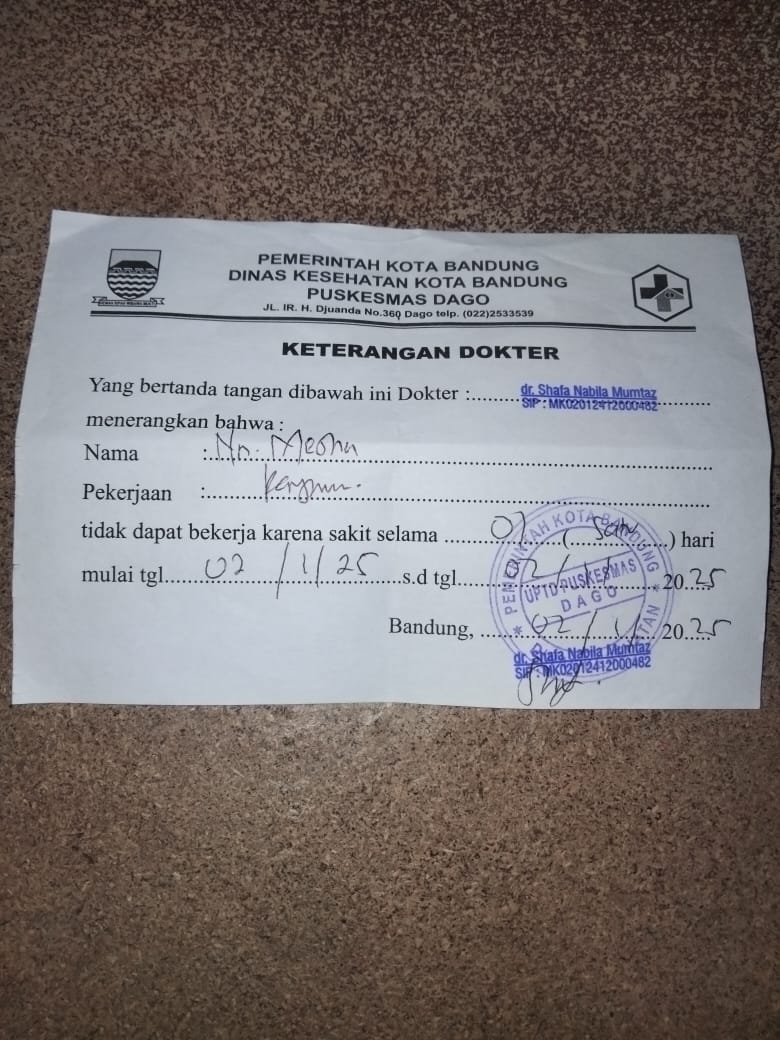 PEMERINTAH KOTA BANDUNG
DINAS KESEHATAN KOTA BANDUNG
PUSKESMAS DAGO
JL. IR. H. Djuanda No.360 Dago telp. (022)2533539
KETERANGAN DOKTER
Yang bertanda tangan dibawah ini Dokter :......... dr. Shafa Nabila Mumtaz
SIP : MK02012412000482
menerangkan bahwa :
Nama : Nn.
Pekerjaan :
tidak dapat bekerja karena sakit selama ........ 01 (satu) hari
mulai tgl. 02/1/25 s.d tgl. 02/1/2025
Bandung, 02/1/2025
PEMERINTAH KOTA BANDUNG
UPTD PUSKESMAS
DAGO
dr. Shafa Nabila Mumtaz
SIP : MK02012412000482